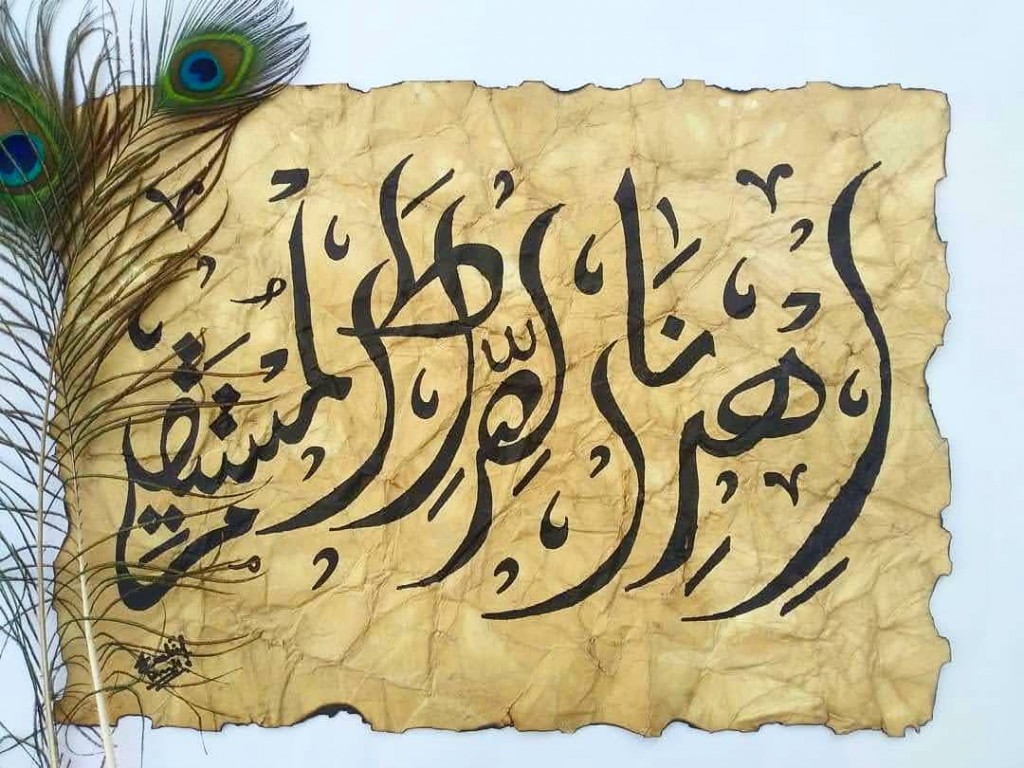 اِهْدِنَا الصِّرَاطَ الْمُسْتَقِيْمَ